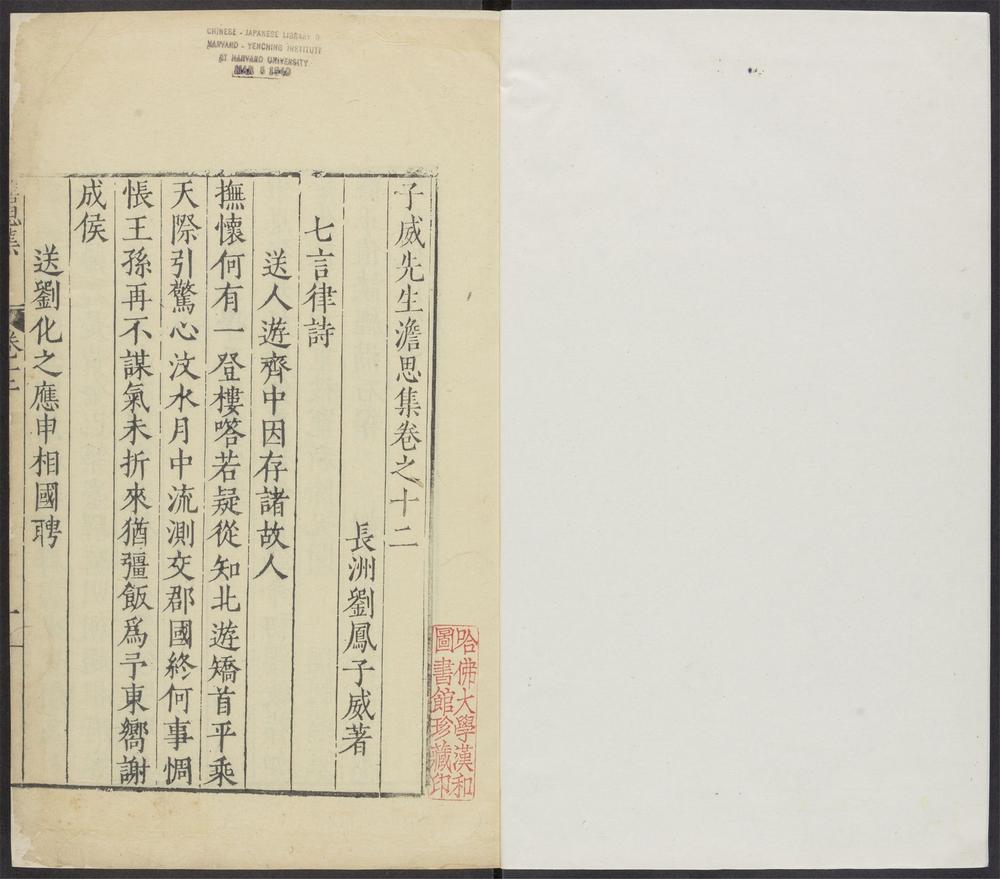 CHINESE - JAPANESE LIBRARY O
HARVARD - YENCHING INSTITUTE
AT HARVARD UNIVERSITY
MAR 5 1940
子威先生澹思集卷之十二
長洲劉鳳子威著
七言律詩
送人遊齊中因存諸故人
撫懷何有一登樓嗒若疑從知北遊矯首平乘
天際引驚心汶水月中流測交郡國終何事惆
悵王孫再不謀氣未折來猶彊飯爲予東嚮謝
成侯
送劉化之應申相國聘
卷十二
一
哈佛大學漢和
圖書館珍藏印